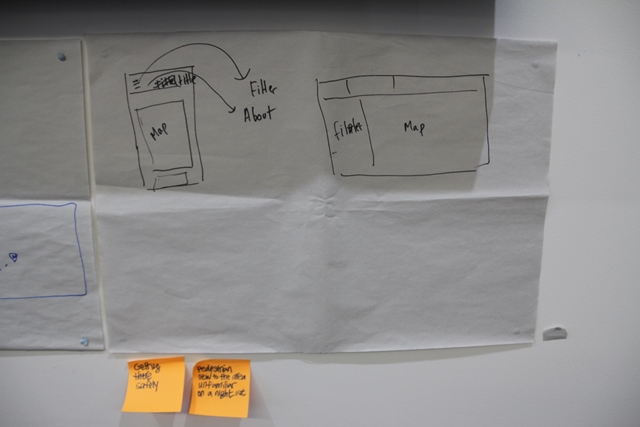 title
Filter
About
Map
filter
Map
Getting
there
safely
Pedestrian
new to the area
unfamiliar
on a night out